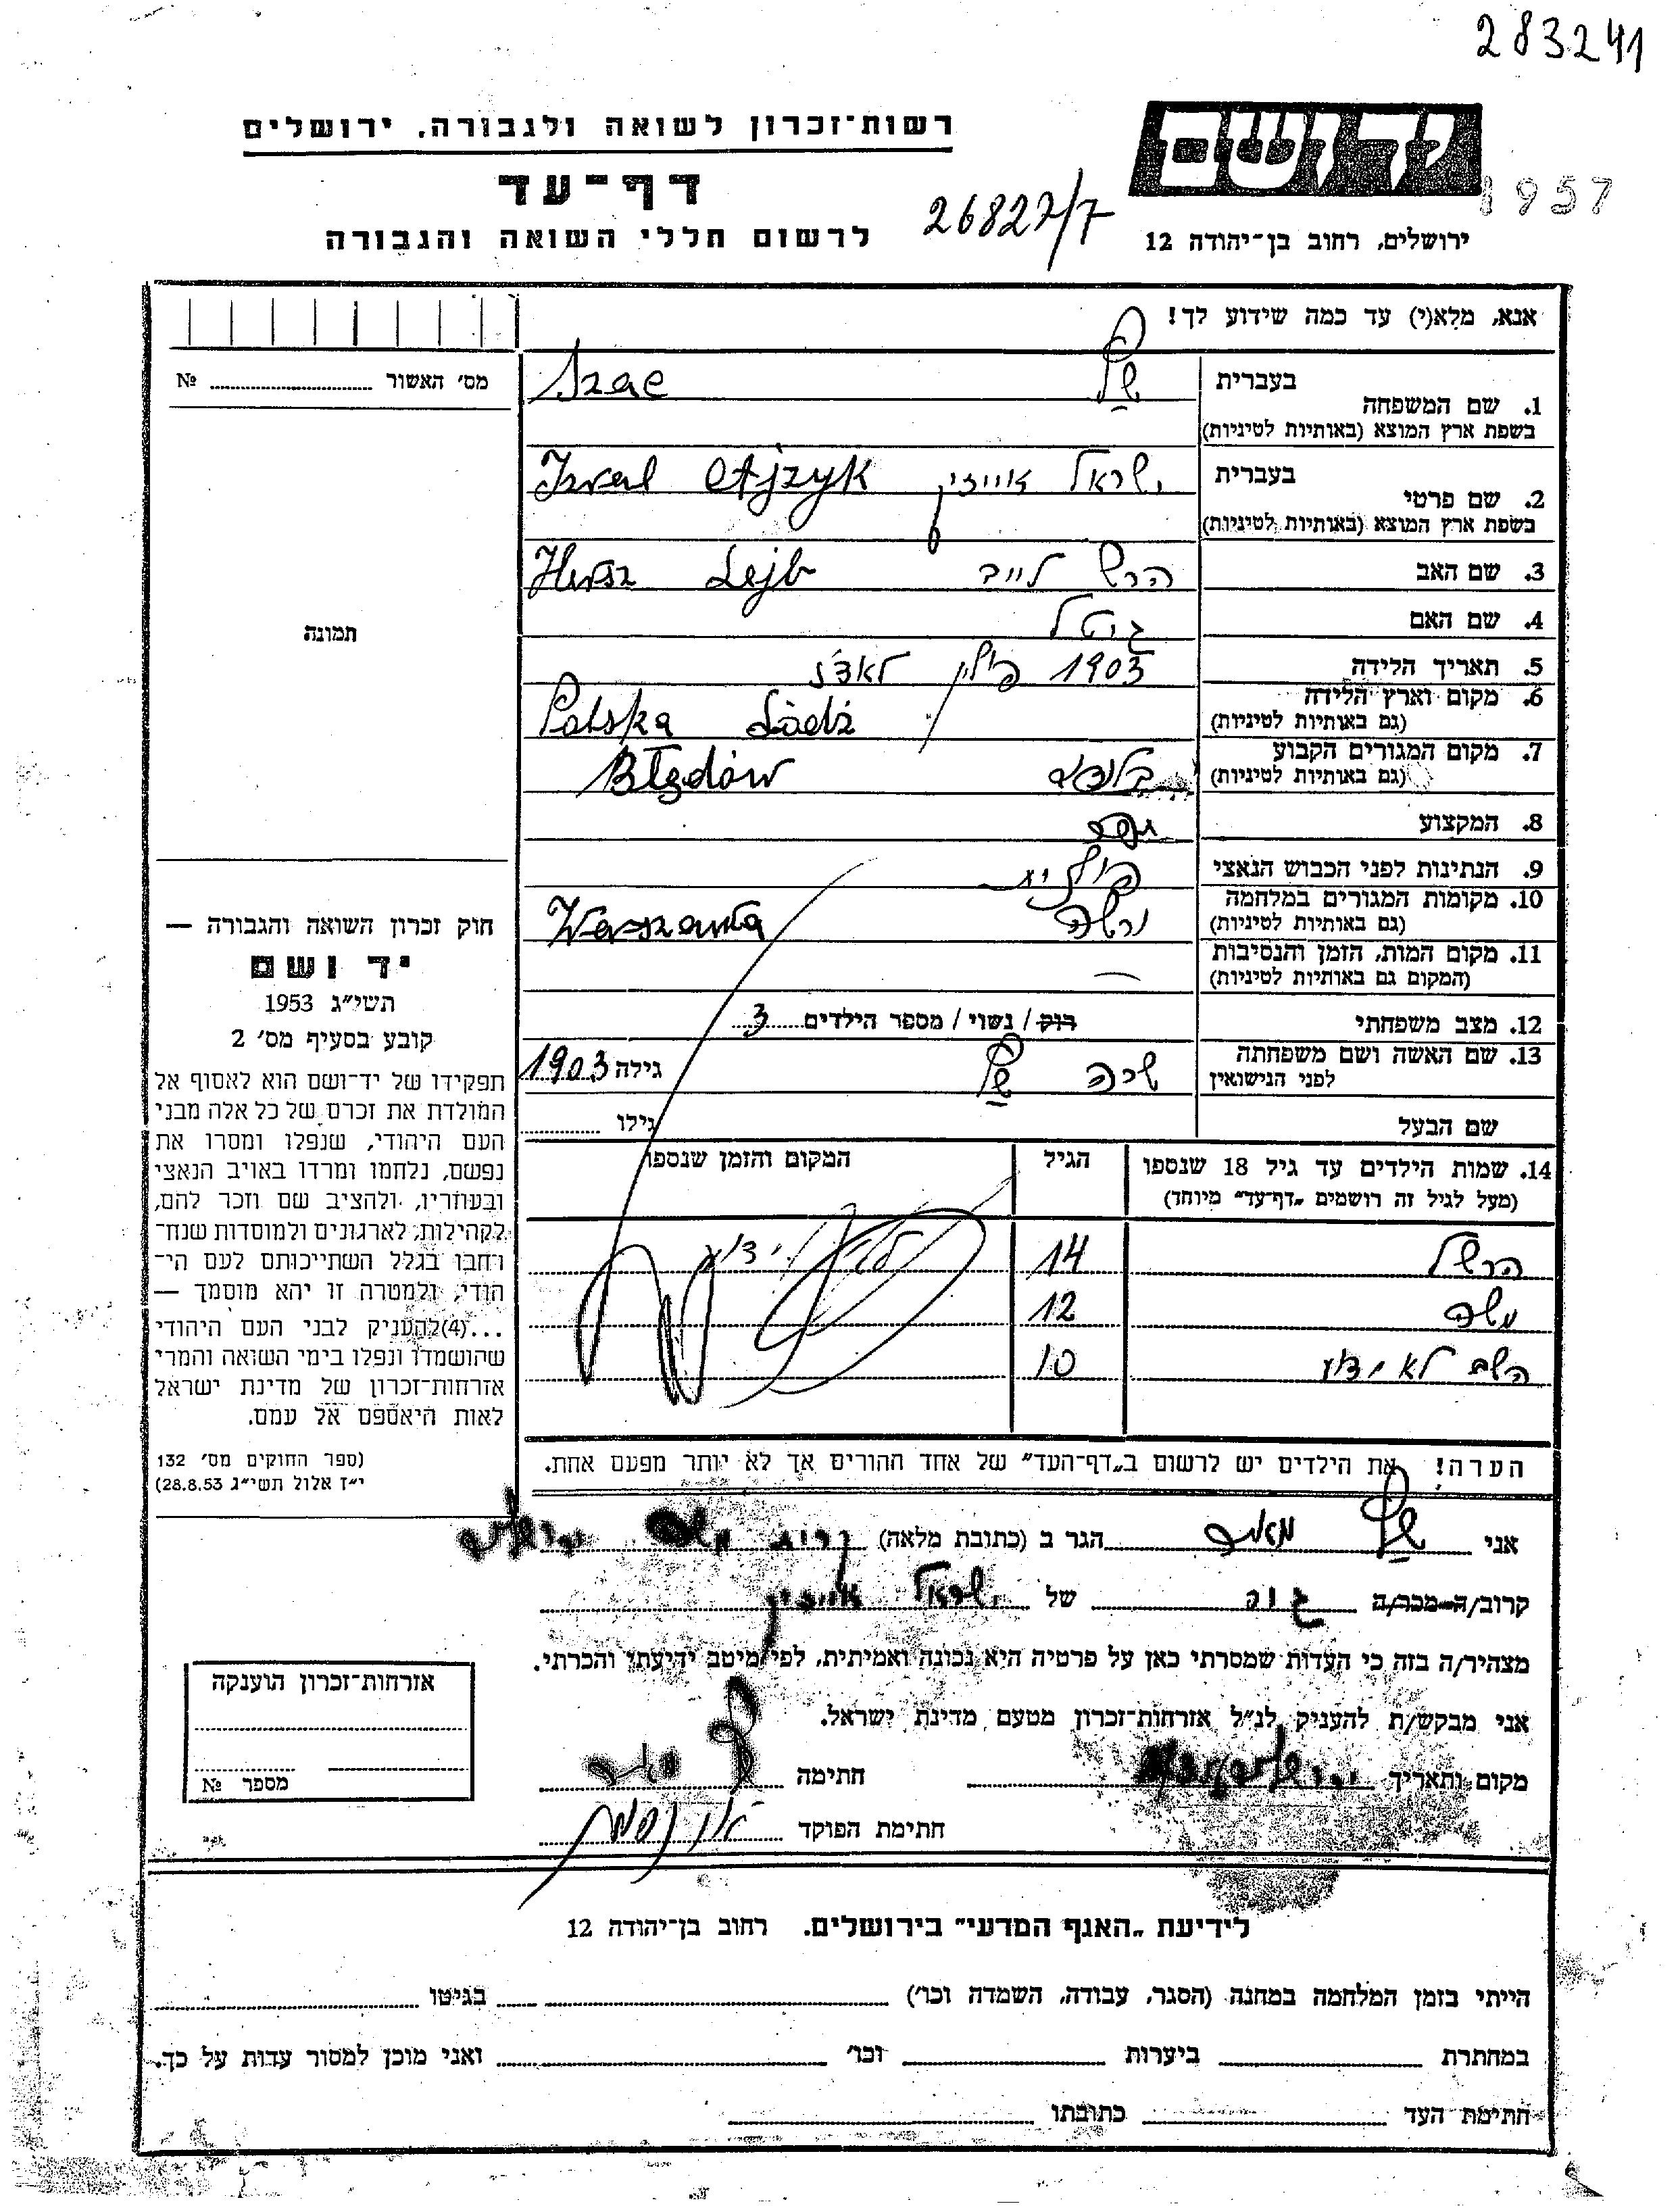 283241
רשות־זכרון לשואה ולגבורה. ירושלים
ידושם
1957
דף־עד
26827/7
לרשום חללי השואה והגבורה
ירושלים, רחוב בן־יהודה 12
אנא, מלא(י) עד כמה שידוע לך!
מס׳ האשור № 
1. שם המשפחה
בעברית
Szac
בשפת ארץ המוצא (באותיות לטיניות)
2. שם פרטי
בעברית ישראל אייזיק Israel Ajzyk
בשפת ארץ המוצא (באותיות לטיניות)
3. שם האב הרש לייב Hersz Lejb
4. שם האם גיטל
5. תאריך הלידה 1903 פולין לאדז'
6. מקום וארץ הלידה
(גם באותיות לטיניות) Polska Łódź
7. מקום המגורים הקבוע
(גם באותיות לטיניות) Błędów
8. המקצוע
9. הנתינות לפני הכבוש הנאצי פולנית
10. מקומות המגורים במלחמה
(גם באותיות לטיניות) ורשה Warszawa
11. מקום המות, הזמן והנסיבות
(המקום גם באותיות לטיניות) —
12. מצב משפחתי רווק / נשוי / מספר הילדים 3
13. שם האשה ושם משפחתה
לפני הנישואין שרה גילה 1903
שם הבעל גילו
14. שמות הילדים עד גיל 18 שנספו הגיל המקום והזמן שנספו
(מעל לגיל זה רושמים „דף־עד״ מיוחד)
הרשל 14 לא ידוע
משה 12
השם לא ידוע 10
הערה! את הילדים יש לרשום ב„דף־העד״ של אחד ההורים אך לא יותר מפעם אחת.
תמונה
חוק זכרון השואה והגבורה —
יד ושם
תשי״ג 1953
קובע בסעיף מס׳ 2
תפקידו של יד־ושם הוא לאסוף אל
המולדת את זכרם של כל אלה מבני
העם היהודי, שנפלו ומסרו את
נפשם, נלחמו ומרדו באויב הנאצי
ובעוזריו, ולהציב שם וזכר להם,
לקהילות, לארגונים ולמוסדות שנח־
רחבו בגלל השתייכותם לעם הי־
הודי, ולמטרה זו יהא מוסמך —
...(4)להעניק לבני העם היהודי
שהושמדו ונפלו בימי השואה והמרי
אזרחות־זכרון של מדינת ישראל
לאות היאספם אל עמם.
(ספר החוקים מס׳ 132
י״ז אלול תשי״ג 28.8.53)
אני הגר ב (כתובת מלאה)
קרוב/ה מכר/ה של ישראל אייזיק
מצהיר/ה בזה כי העדות שמסרתי כאן על פרטיה היא נכונה ואמיתית, לפי מיטב ידיעתי והכרתי.
אני מבקש/ת להעניק לנ״ל אזרחות־זכרון מטעם מדינת ישראל.
מקום ותאריך חתימה
חתימת הפוקד
אזרחות־זכרון הוענקה
מספר №
לידיעת „האגף המדעי״ בירושלים. רחוב בן־יהודה 12
הייתי בזמן המלחמה במחנה (הסגר, עבודה, השמדה וכו׳) בגיטו
במחתרת ביערות וכו׳ ואני מוכן למסור עדות על כך.
חתימת העד כתובתו